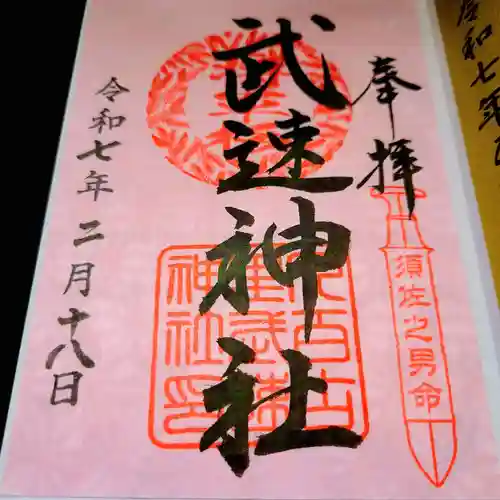 奉拝
須佐之男命
武速神社
令和七年二月十八日
令和七年